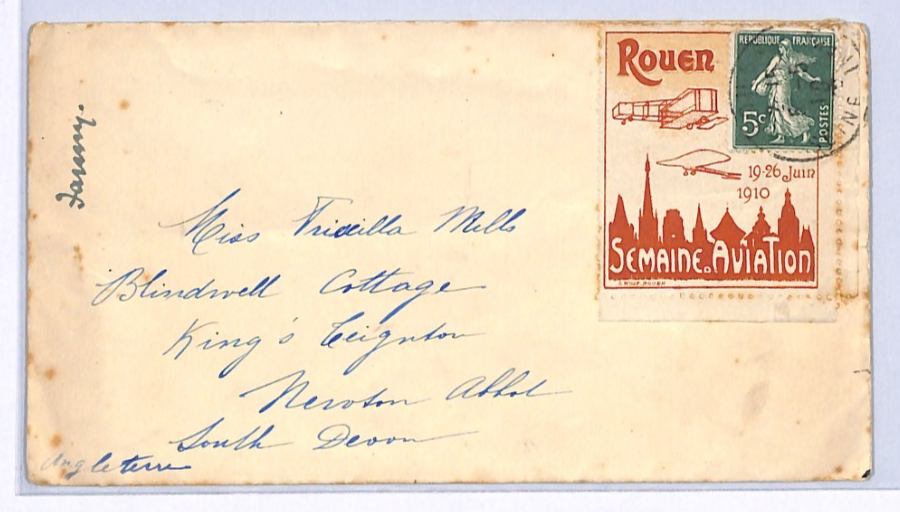 Rouen
REPUBLIQUE FRANÇAISE
5c
POSTES
19-26 Juin
1910
SEMAINE D'AVIATION
Miss Priscilla Mills
Blindwell Cottage
King's Teignton
Newton Abbot
South Devon
Angleterre